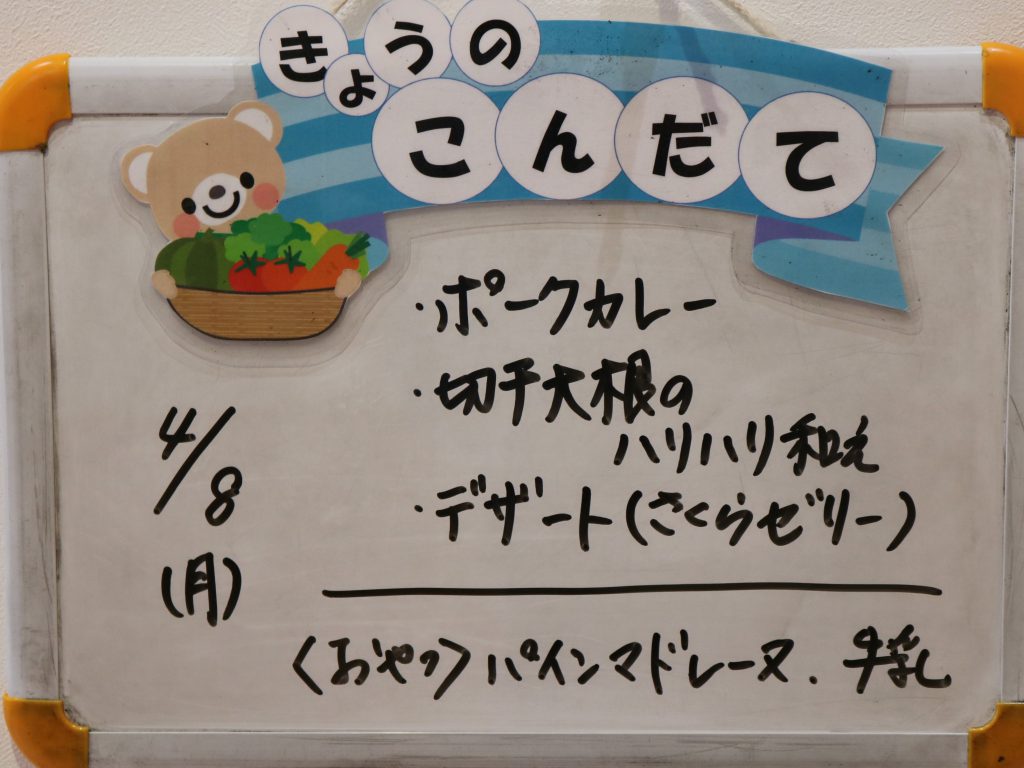 きょうの
こんだて
・ポークカレー
・切干大根の
ハリハリ和え
・デザート(さくらゼリー)
4/8
(月)
〈おやつ〉パインマドレーヌ. 牛乳